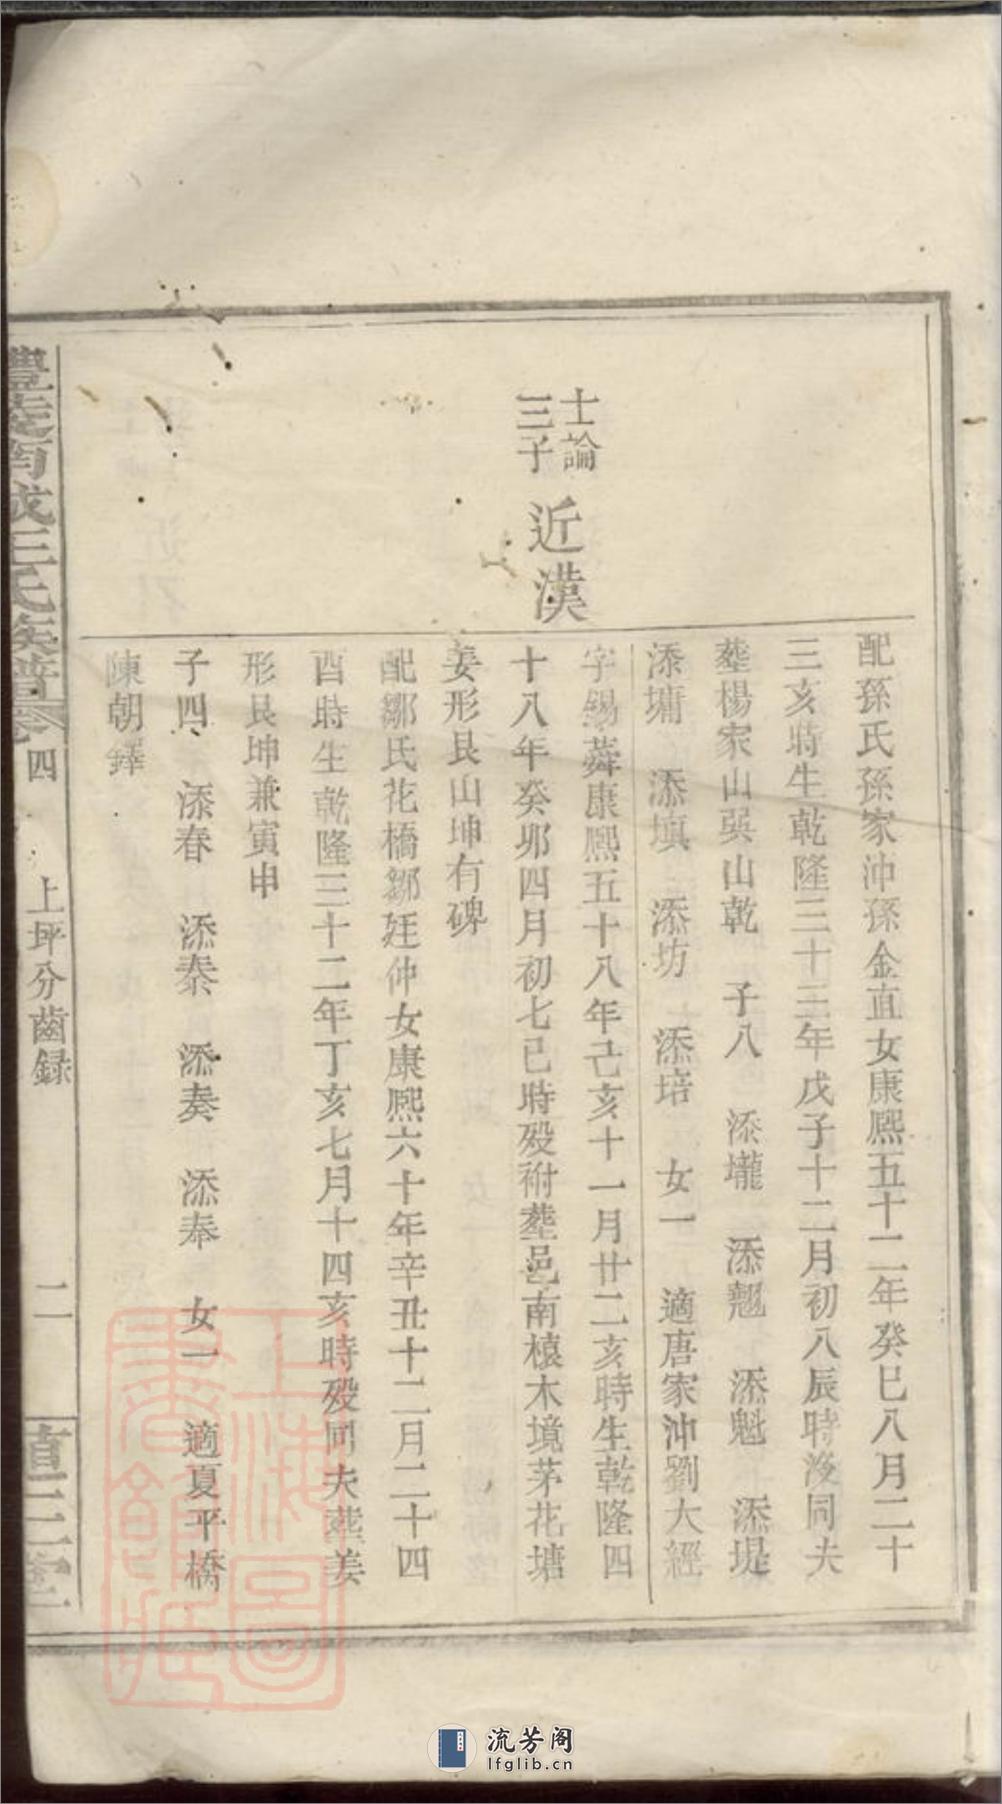 配孫氏孫家沖孫金直女康熙五十二年癸巳八月二十
三亥時生乾隆三十三年戊子十二月初八辰時歿同夫
葬楊家山巽山乾 子八 添壠 添翹 添魁 添堤
添墉 添塡 添坊 添培 女一 適唐家沖劉大經
士論
三子
近漢
字錫舜康熙五十八年己亥十一月廿二亥時生乾隆四
十八年癸卯四月初七巳時歿祔葬邑南榬木境茅花塘
姜形艮山坤有碑
配鄒氏花橋鄒廷仲女康熙六十年辛丑十二月二十四
酉時生乾隆三十二年丁亥七月十四亥時歿同夫葬姜
形艮坤兼寅申
子四 添春 添泰 添奏 添奉 女一 適夏平橋
陳朝鐸
南城王氏族譜卷四 上坪分齒録 二
上海圖書館藏
流芳阁
lfglib.cn